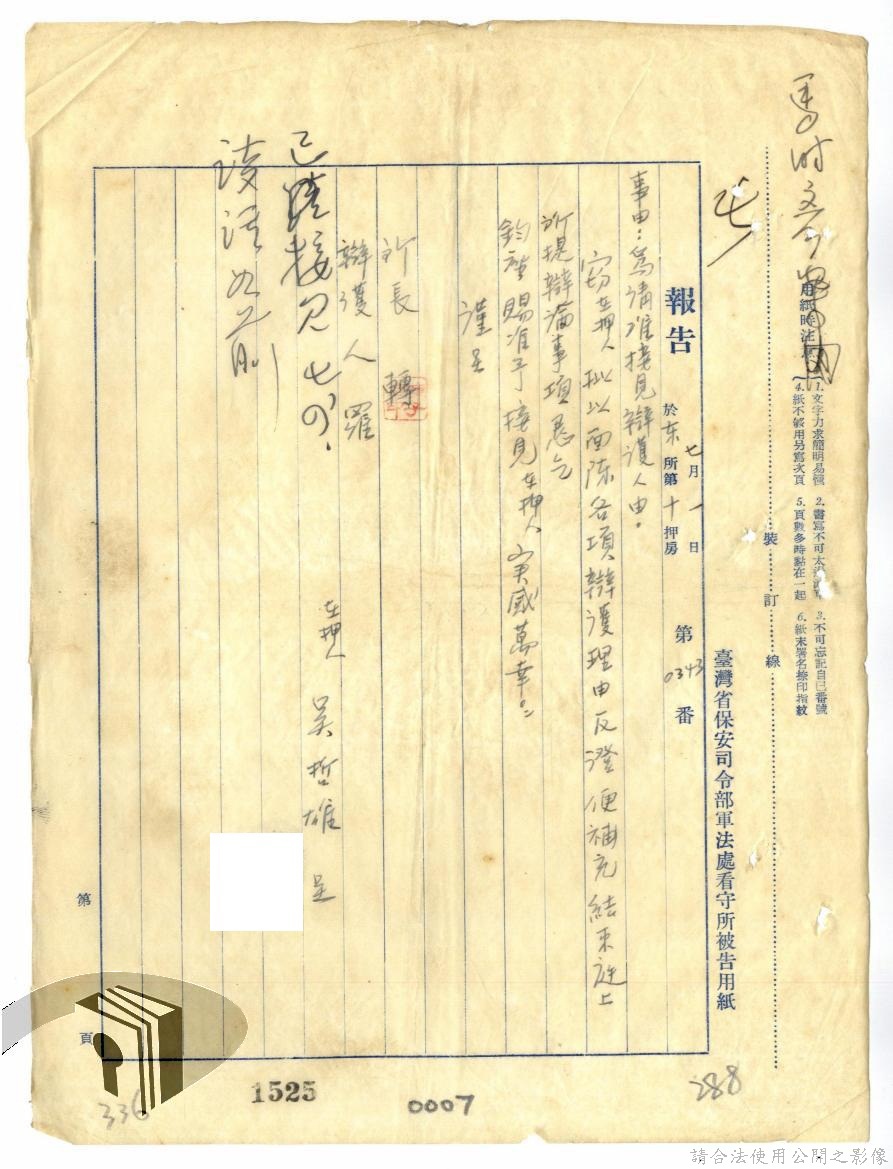 用紙時注意
1.文字力求簡明易懂
2.書寫不可太潦草
3.不可忘記自己番號
4.紙不够用另寫次頁
5.頁數多時黏在一起
6.紙末署名捺印指紋
裝訂線
臺灣省保安司令部軍法處看守所被告用紙
報告
七月一日
於东所第十押房
第0343番
事由：為請准接見辯護人由。
竊在押人擬以面陳各項辯護理由反證便補充結束庭上
所提辯論事項懇乞
鈞座賜准予接見在押人實感萬幸。
謹呈
所長 轉
辯護人 羅
在押人 吳哲雄 呈
已 接見 七、
第 頁
336
1525
0007
288
請合法使用公開之影像